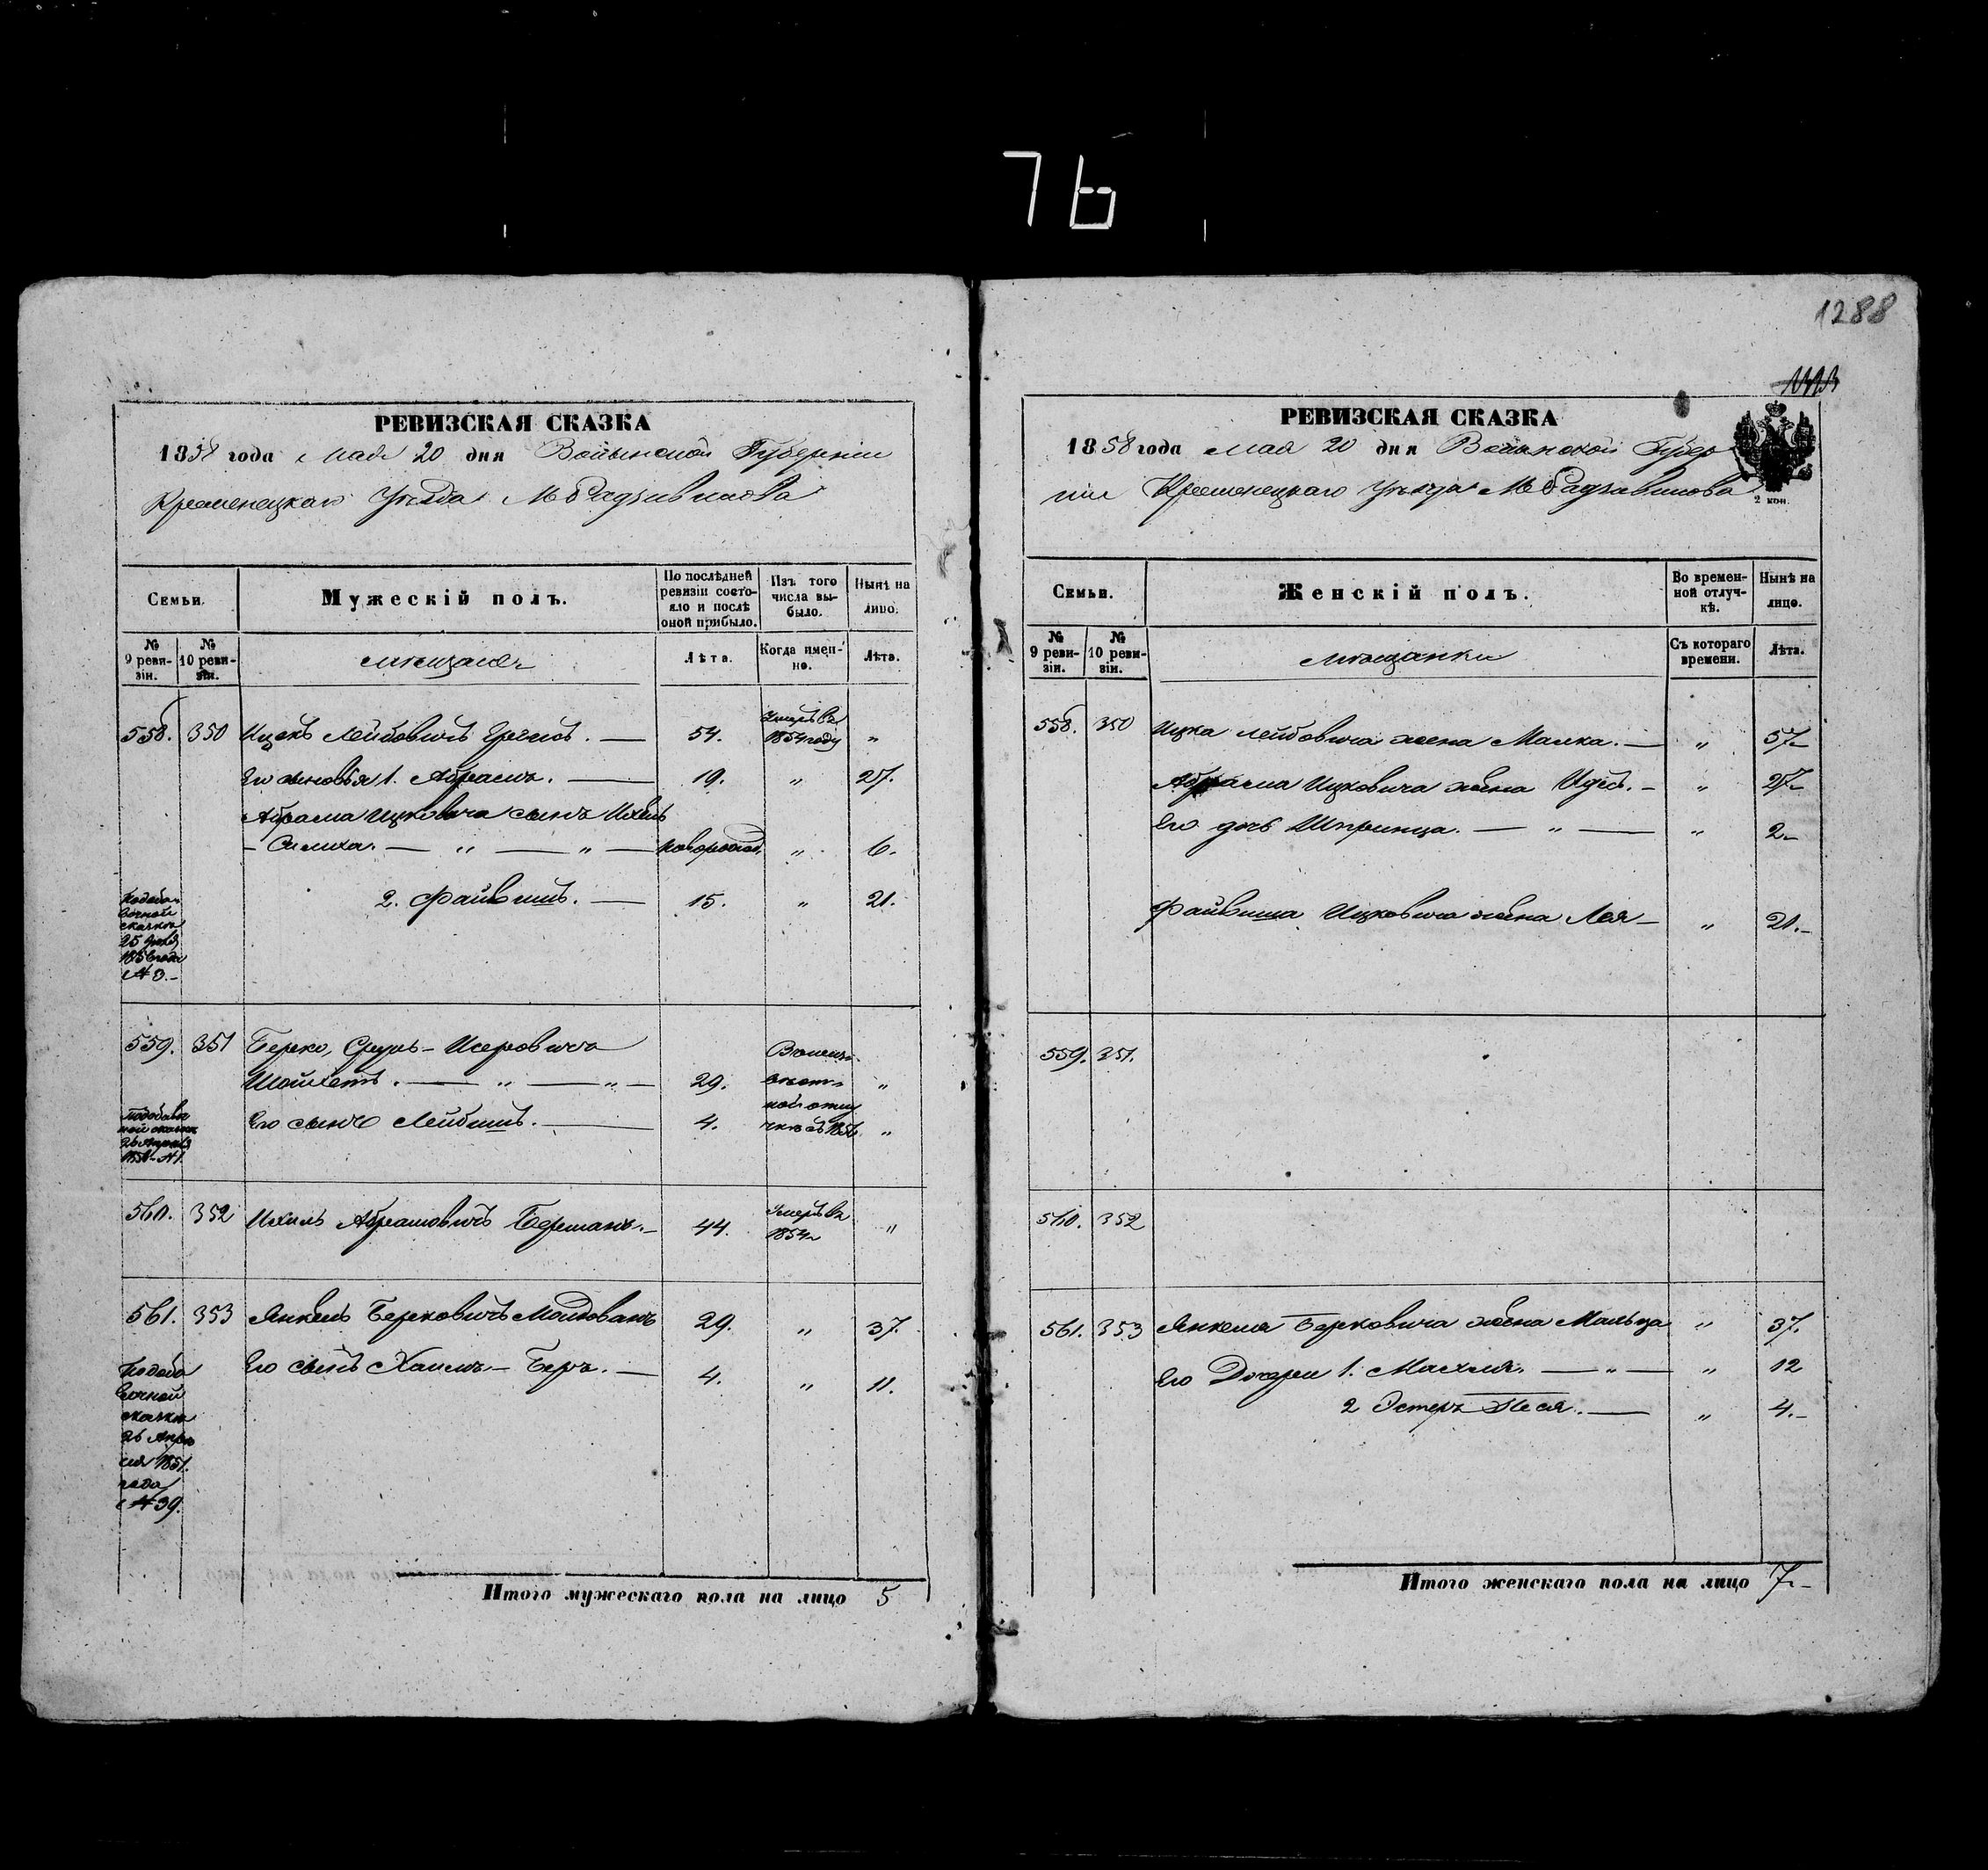 76
1288
РЕВИЗСКАЯ СКАЗКА
1858 года мая 20 дня Волынской Губернии
Кременецкаго Уѣзда М. Радзивилова
Семьи.
Мужескій полъ.
По послѣдней ревизіи состояло и послѣ оной прибыло.
Изъ того числа выбыло.
Нынѣ на лицо.
№ 9 ревизіи.
№ 10 ревизіи.
мѣщане
Лѣта.
Когда именно.
Лѣта.
558. 350 Ицекъ Лейбовичъ 54. Умеръ въ 1854 году "
Его сыновья 1. Абрамъ. 19. " 27.
Абрама Ицковича сынъ Ихель
Симха. " " новорожд. " 6.
2. Файвишъ. 15. " 21.
По добавочной сказкѣ 25 1856 года № 3.
559. 351 Берко, Сруль-Исеровичъ
Шойхетъ. " " 29. "
Его сынъ Лейбишъ. 4. "
По добавочной сказкѣ 26 Апрѣля 1851 № 1.
560. 352 Ихиль Абрамовичъ Берманъ. 44. Умеръ въ 1854 "
561. 353 Янкель Берковичъ Молдованъ 29. " 37.
Его сынъ Хаимъ-Беръ. 4. " 11.
По добавочной сказкѣ 26 Апрѣля 1851. года № 39.
Итого мужескаго пола на лицо 5
РЕВИЗСКАЯ СКАЗКА
1858 года мая 20 дня Волынской Губер
ніи Кременецкаго Уѣзда М. Радзивилова
2 коп.
Семьи.
Женскій полъ.
Во временной отлучкѣ.
Нынѣ на лицо.
№ 9 ревизіи.
№ 10 ревизіи.
мѣщанки
Съ котораго времени.
Лѣта.
558. 350 Ицка Лейбовича жена Малка. " 57
Абрама Ицковича жена " 27
Его дочь Шпринца. " " 2
Файвиша Ицковича жена Лея " 21.
559. 351.
560. 352
561. 353 Янкеля Берковича жена Мальца " 37.
Его Дочери 1. Махля. " " 12
2 Эстеръ Песя. " 4.
Итого женскаго пола на лицо 7